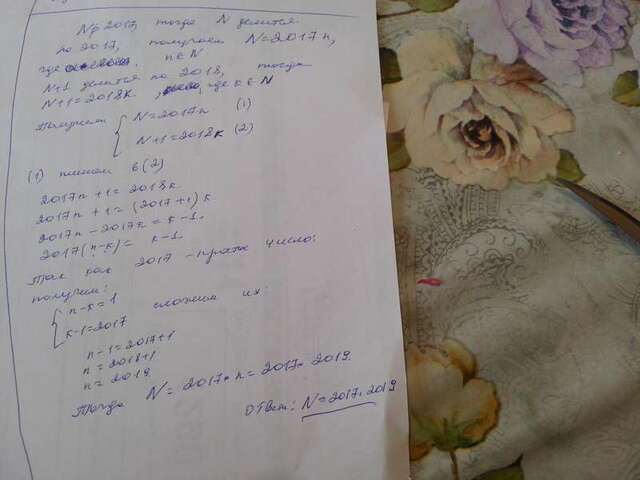 N⋮2017, тогда N делится
на 2017, получаем N=2017n,
где n∈N
N+1 делится на 2018, тогда
N+1=2018k, где k∈N
Получаем { N=2017n (1)
N+1=2018k (2)
(1) ставим в (2)
2017n+1=2018k
2017n+1=(2017+1)k
2017n-2017k=k-1
2017(n-k)=k-1
Так как 2017 - простое число:
получаем:
{ n-k=1
k-1=2017 сложим их:
n-1=2017+1
n=2018+1
n=2019
Тогда N=2017·n=2017·2019
Ответ: N=2017·2019